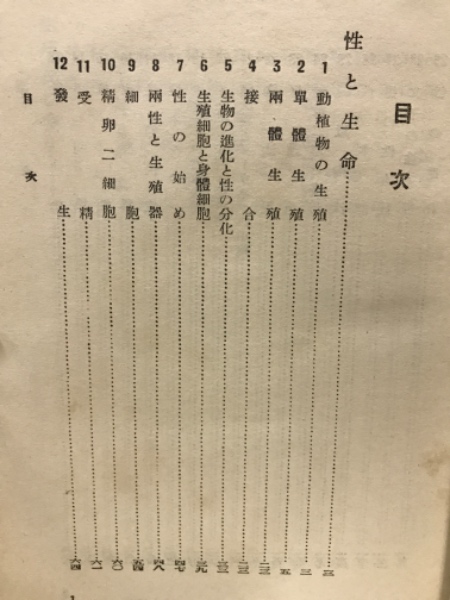 目次
性と生命
1 動植物の生殖
2 單體生殖
3 兩體生殖
4 接合
5 生物の進化と性の分化
6 生殖細胞と身體細胞
7 性の始め 四七
8 兩性と生殖器 四八
9 細胞 五四
10 精卵二細胞 六〇
11 受精 六一
12 發生 六四
目次
1